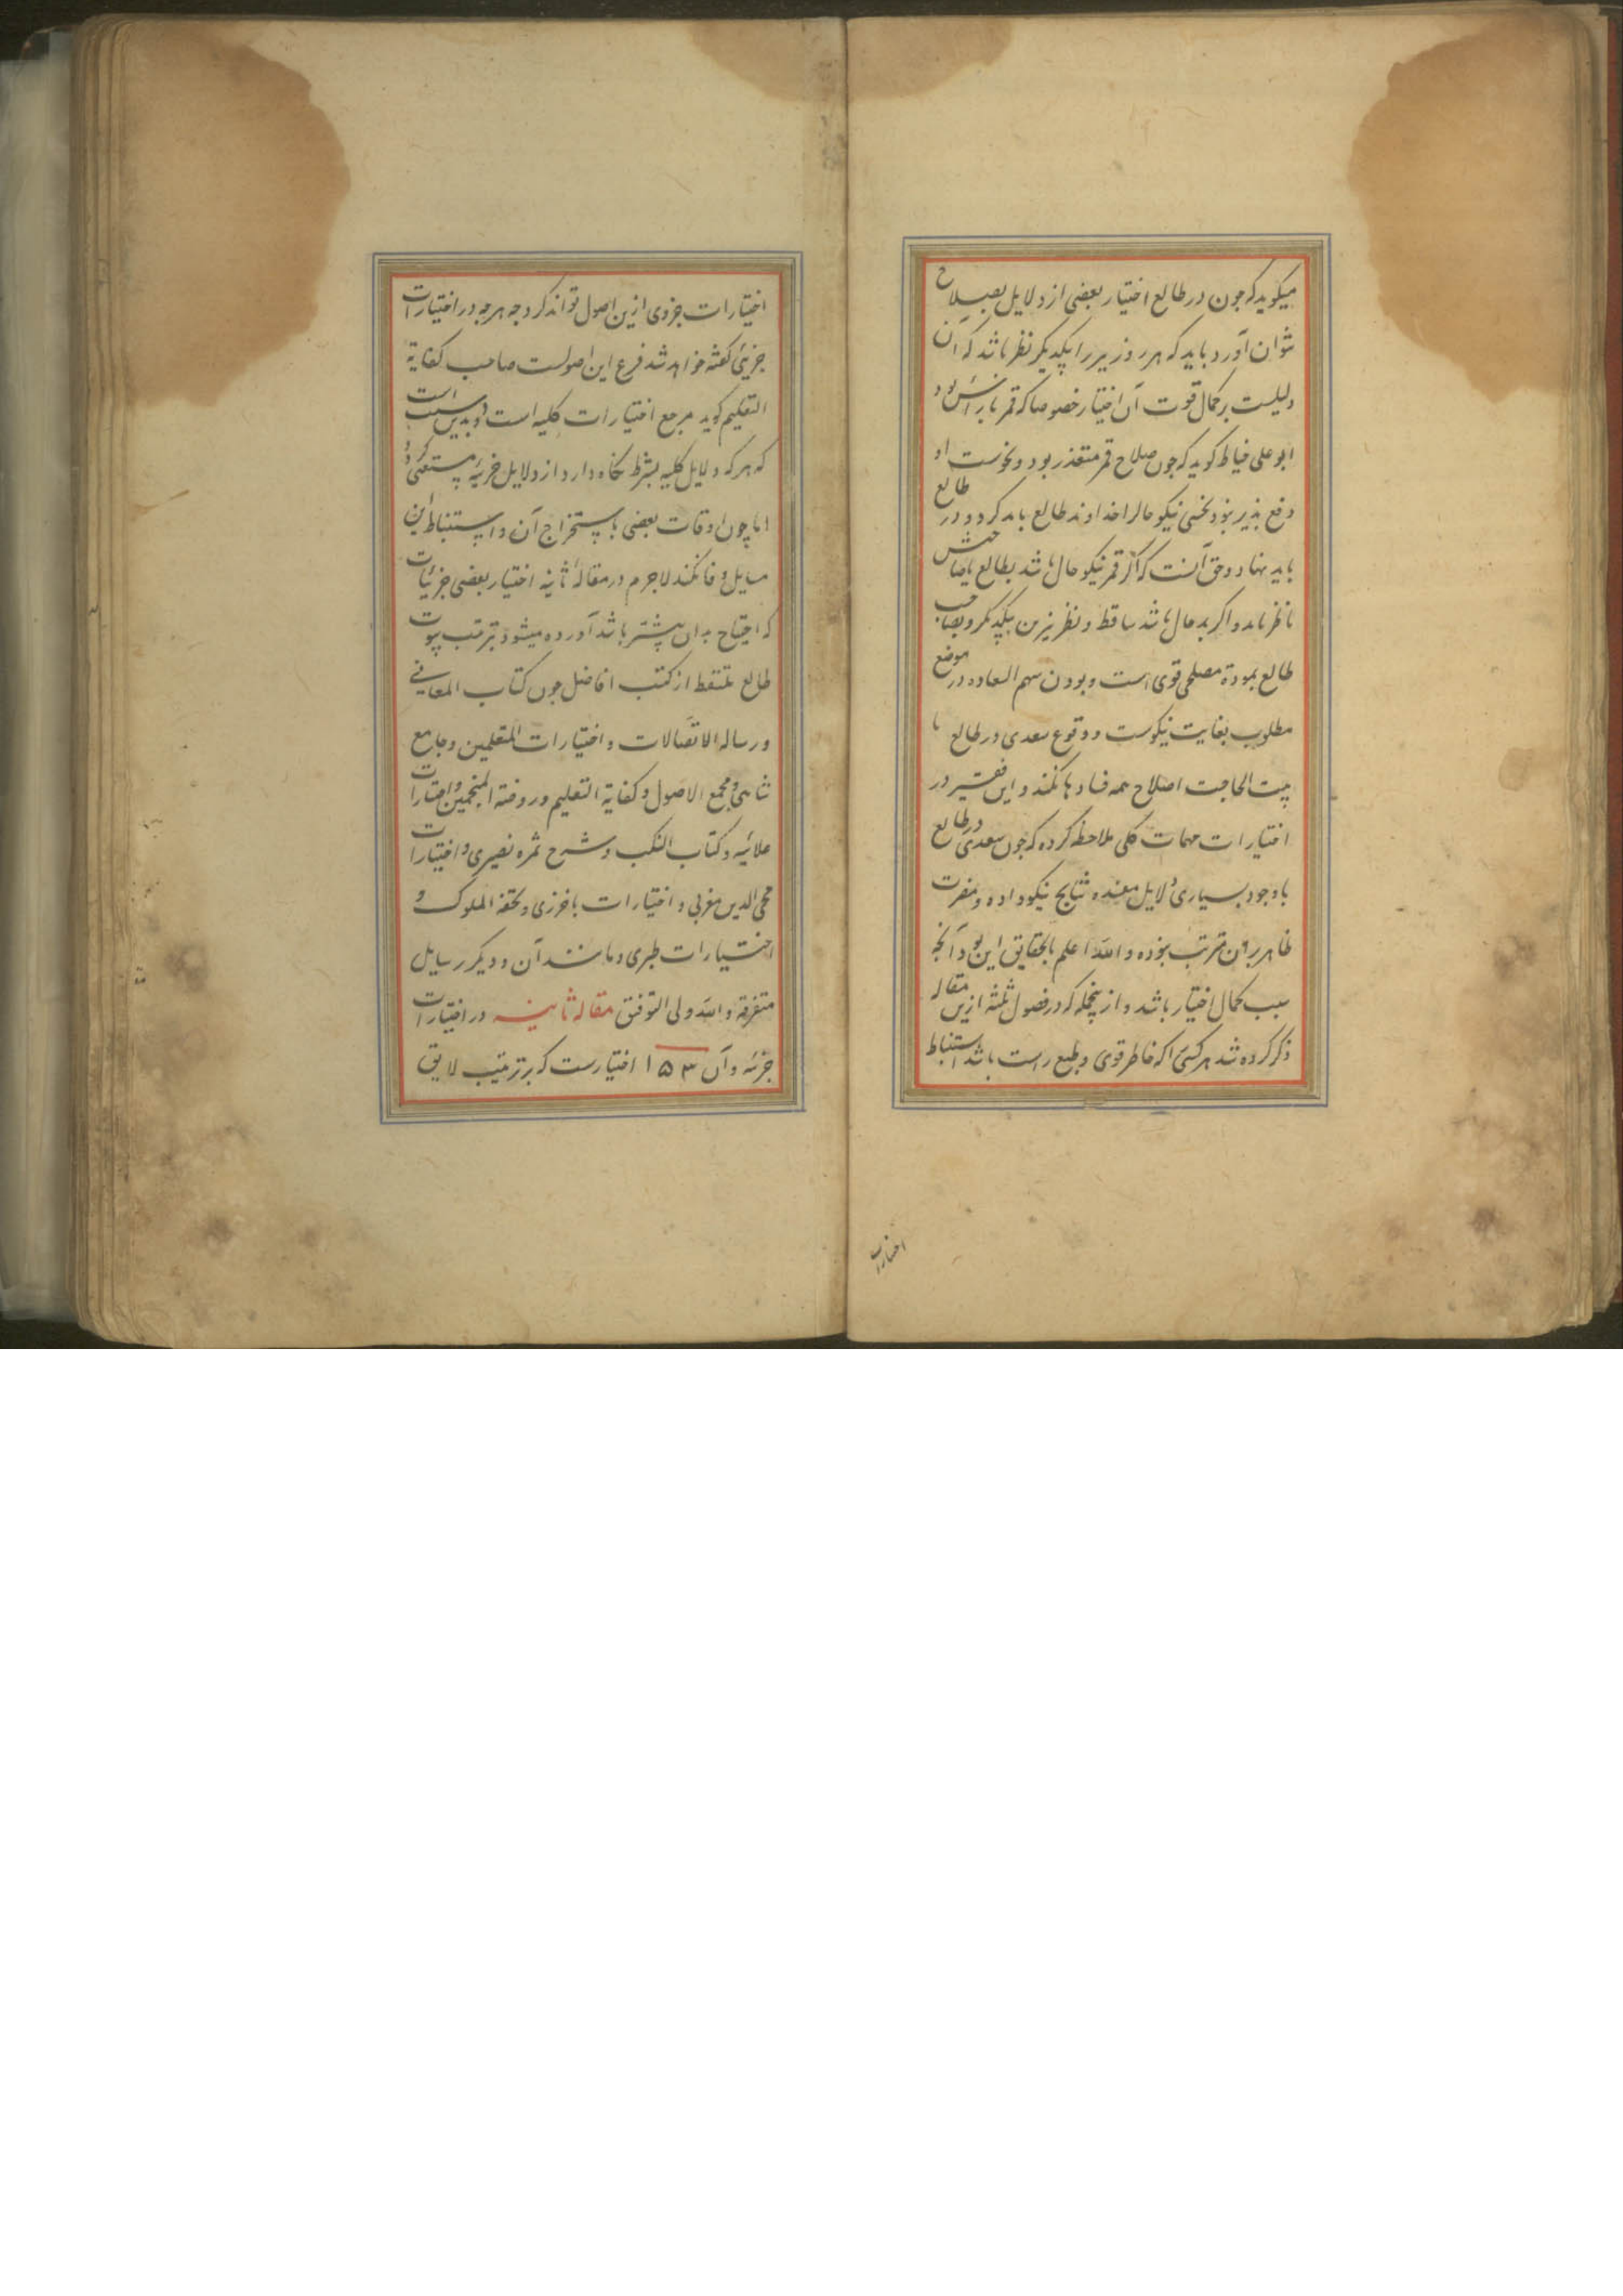 میکوید که جون در طالع اختیار بعضی از دلایل بصلاح
نتوان آورد باید که هر روز نیر را بیکدیکر نظر باشد که آن
دلیلست بر کمال قوت آن اختیار خصوصا که قمر
ابو علی خیاط کوید که جون صلاح قمر متعذر بود و نحوست او
دفع بذیر نبود نحسی نیکو حال را خداوند طالع باید کرد و در طالع
باید نهاد و حق آنست که اکر قمر نیکو حال باشد بطالع یا صاحبش
ناظر باید و اکر بد حال باشد ساقط و نظر نیرین بیکدیکر و بصاحب
طالع بمودة مصلحی قوی است و بودن سهم السعاده در موضع
مطلوب بغایت نیکوست و وقوع سعدی در طالع یا
بیت الحاجت اصلاح همه فسادها بکند و این فقیر در
اختیارات مهمات کلی ملاحظه کرده که جون سعدی در طالع
با وجود بسیاری دلایل مفسده نتایج نیکو داده و مضرت
ظاهر بر آن مترتب نبوده و الله اعلم بالحقایق این بود آنجه
سبب کمال اختیار باشد و از ینجمله که در فصول ثلثه ازین مقاله
ذکر کرده شد هر کسی را که خاطر قوی و طبع راست باشد استنباط
اختیارات
اختیارات جزوی ازین اصول تواند کرد جه هرجه در اختیارات
جزیی کفته خواهد شد فرع این اصولست صاحب کفایة
التعلیم کوید مرجع اختیارات کلیه است و بدین سبب است
که هر که دلایل کلیه بشرط نکاه دارد از دلایل جزییه مستغنی کردد
اما چون اوقات بعضی باستخراج آن و استنباط این
مسایل وفا نکند لاجرم در مقالهٔ ثانیه اختیار بعضی جزئیات
که احتیاج بدان بیشتر باشد آورده میشود بترتیب بیوت
طالع ملتقط از کتب افاضل جون کتاب المعانی
و رساله الاتصالات و اختیارات المتعلمین و جامع
شاهی و مجمع الاصول و کفایة التعلیم و روضه المنجمین و اختیارات
علائیه و کتاب النکب و شرح ثمره نصیری و اختیارات
محی الدین مغربی و اختیارات باخرزی و تحفه الملوک و
اختیارات طبری و مانند آن و دیکر رسایل
متفرقه و الله ولی التوفیق مقاله ثانیه در اختیارات
جزئیه و آن ۱۵۳ اختیارست که بر ترتیب لایق